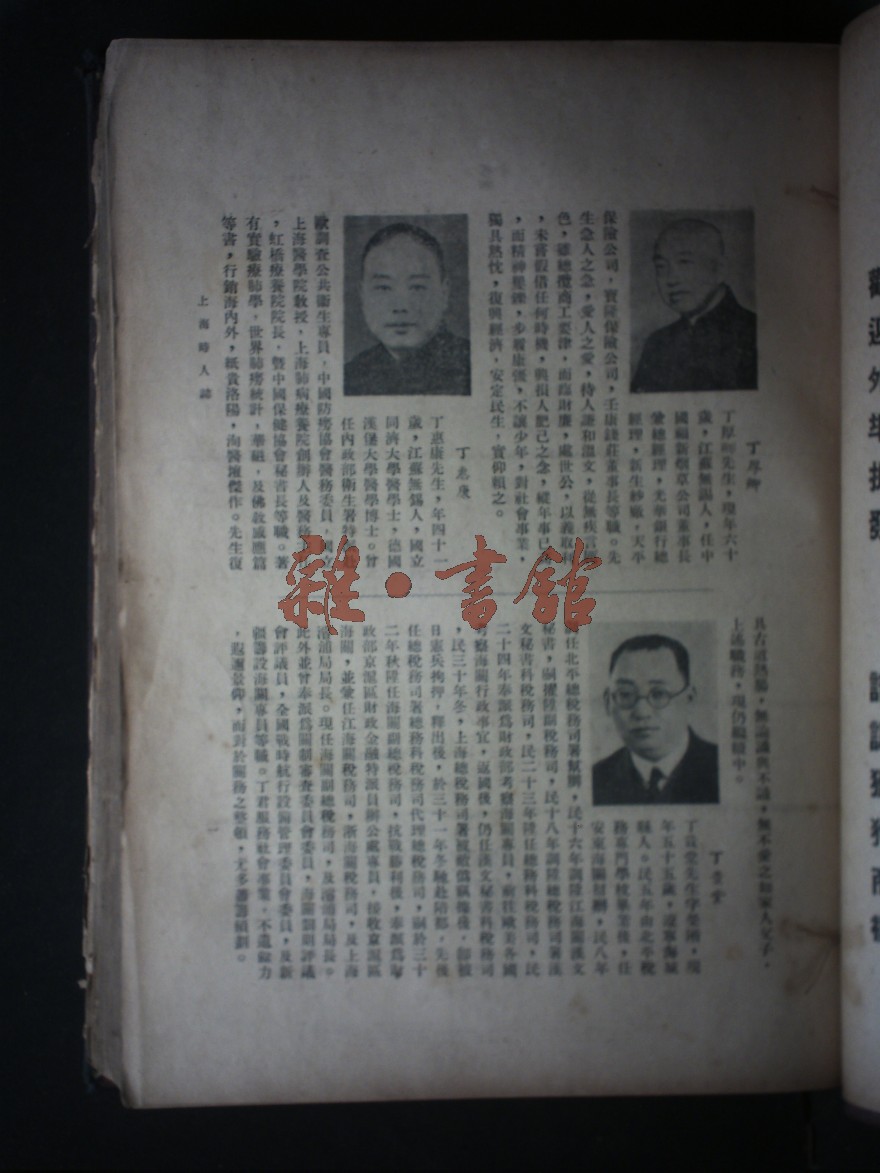 丁厚卿
丁厚卿先生，現年六十
歲，江蘇無錫人，任中
國福新烟草公司董事長
兼總經理，光華銀行總
經理，新生紗廠，天平
保險公司，寶隆保險公司，壬康錢莊董事長等職。先
生急人之急，愛人之愛，待人謙和溫文，從無疾言
色，雖總攬商工要津，而臨財廉，處世公，以義取利
，未嘗假借任何時機，興損人肥己之念，縱年事已
，而精神矍鑠，步履康強，不讓少年，對社會事業，
獨具熱忱，復興經濟，安定民生，實仰賴之。
丁惠康
丁惠康先生，年四十一
歲，江蘇無錫人，國立
同濟大學醫學士，德國
漢堡大學醫學博士。曾
任內政部衛生署特
歐調查公共衛生專員，中國防癆協會醫務委員，國立
上海醫學院教授，上海肺病療養院創辦人及醫務
，虹橋療養院院長，暨中國保健協會秘書長等職。著
有實驗療肺學，世界肺癆統計，華磁，及佛教感應篇
等書，行銷海內外，紙貴洛陽，洵醫壇傑作。先生復
上海時人誌
具古道熱腸，無論識與不識，無不愛之如家人父子，
上述職務，現仍繼續中。
丁貴堂
丁貴堂先生字榮閣，現
年五十五歲，遼寧海城
縣人。民五年由北平稅
務專門學校畢業後，任
安東海關幫辦，民八年
調任北平總稅務司署幫辦，民十六年調陞江海關漢文
秘書，嗣擢陞副稅務司，民十八年調陞總稅務司署漢
文秘書科稅務司，民二十三年陞任總務科稅務司，民
二十四年奉派爲財政部考察海關專員，前往歐美各國
考察海關行政事宜，返國後，仍任漢文秘書科稅務司
，民三十年冬，上海總稅務司署被敵僞佔據後，卽被
日憲兵拘押，釋出後，於三十一年冬馳赴陪都，先後
任總稅務司署總務科稅務司代理總稅務司，嗣於三十
二年秋陞任海關副總稅務司，抗戰勝利後，奉派爲
政部京滬區財政金融特派員辦公處專員，接收京滬區
海關，並兼任江海關稅務司，浙海關稅務司，及上海
濬浦局局長。現任海關副總稅務司，及濬浦局局長。
此外並曾奉派爲關制審查委員會委員，海關罰則評議
會評議員，全國戰時航行設備管理委員會委員，及新
疆籌設海關專員等職。丁君服務社會事業，不遺餘力
，遐邇景仰，而對於關務之整頓，尤多籌籌碩劃。
雜·書館